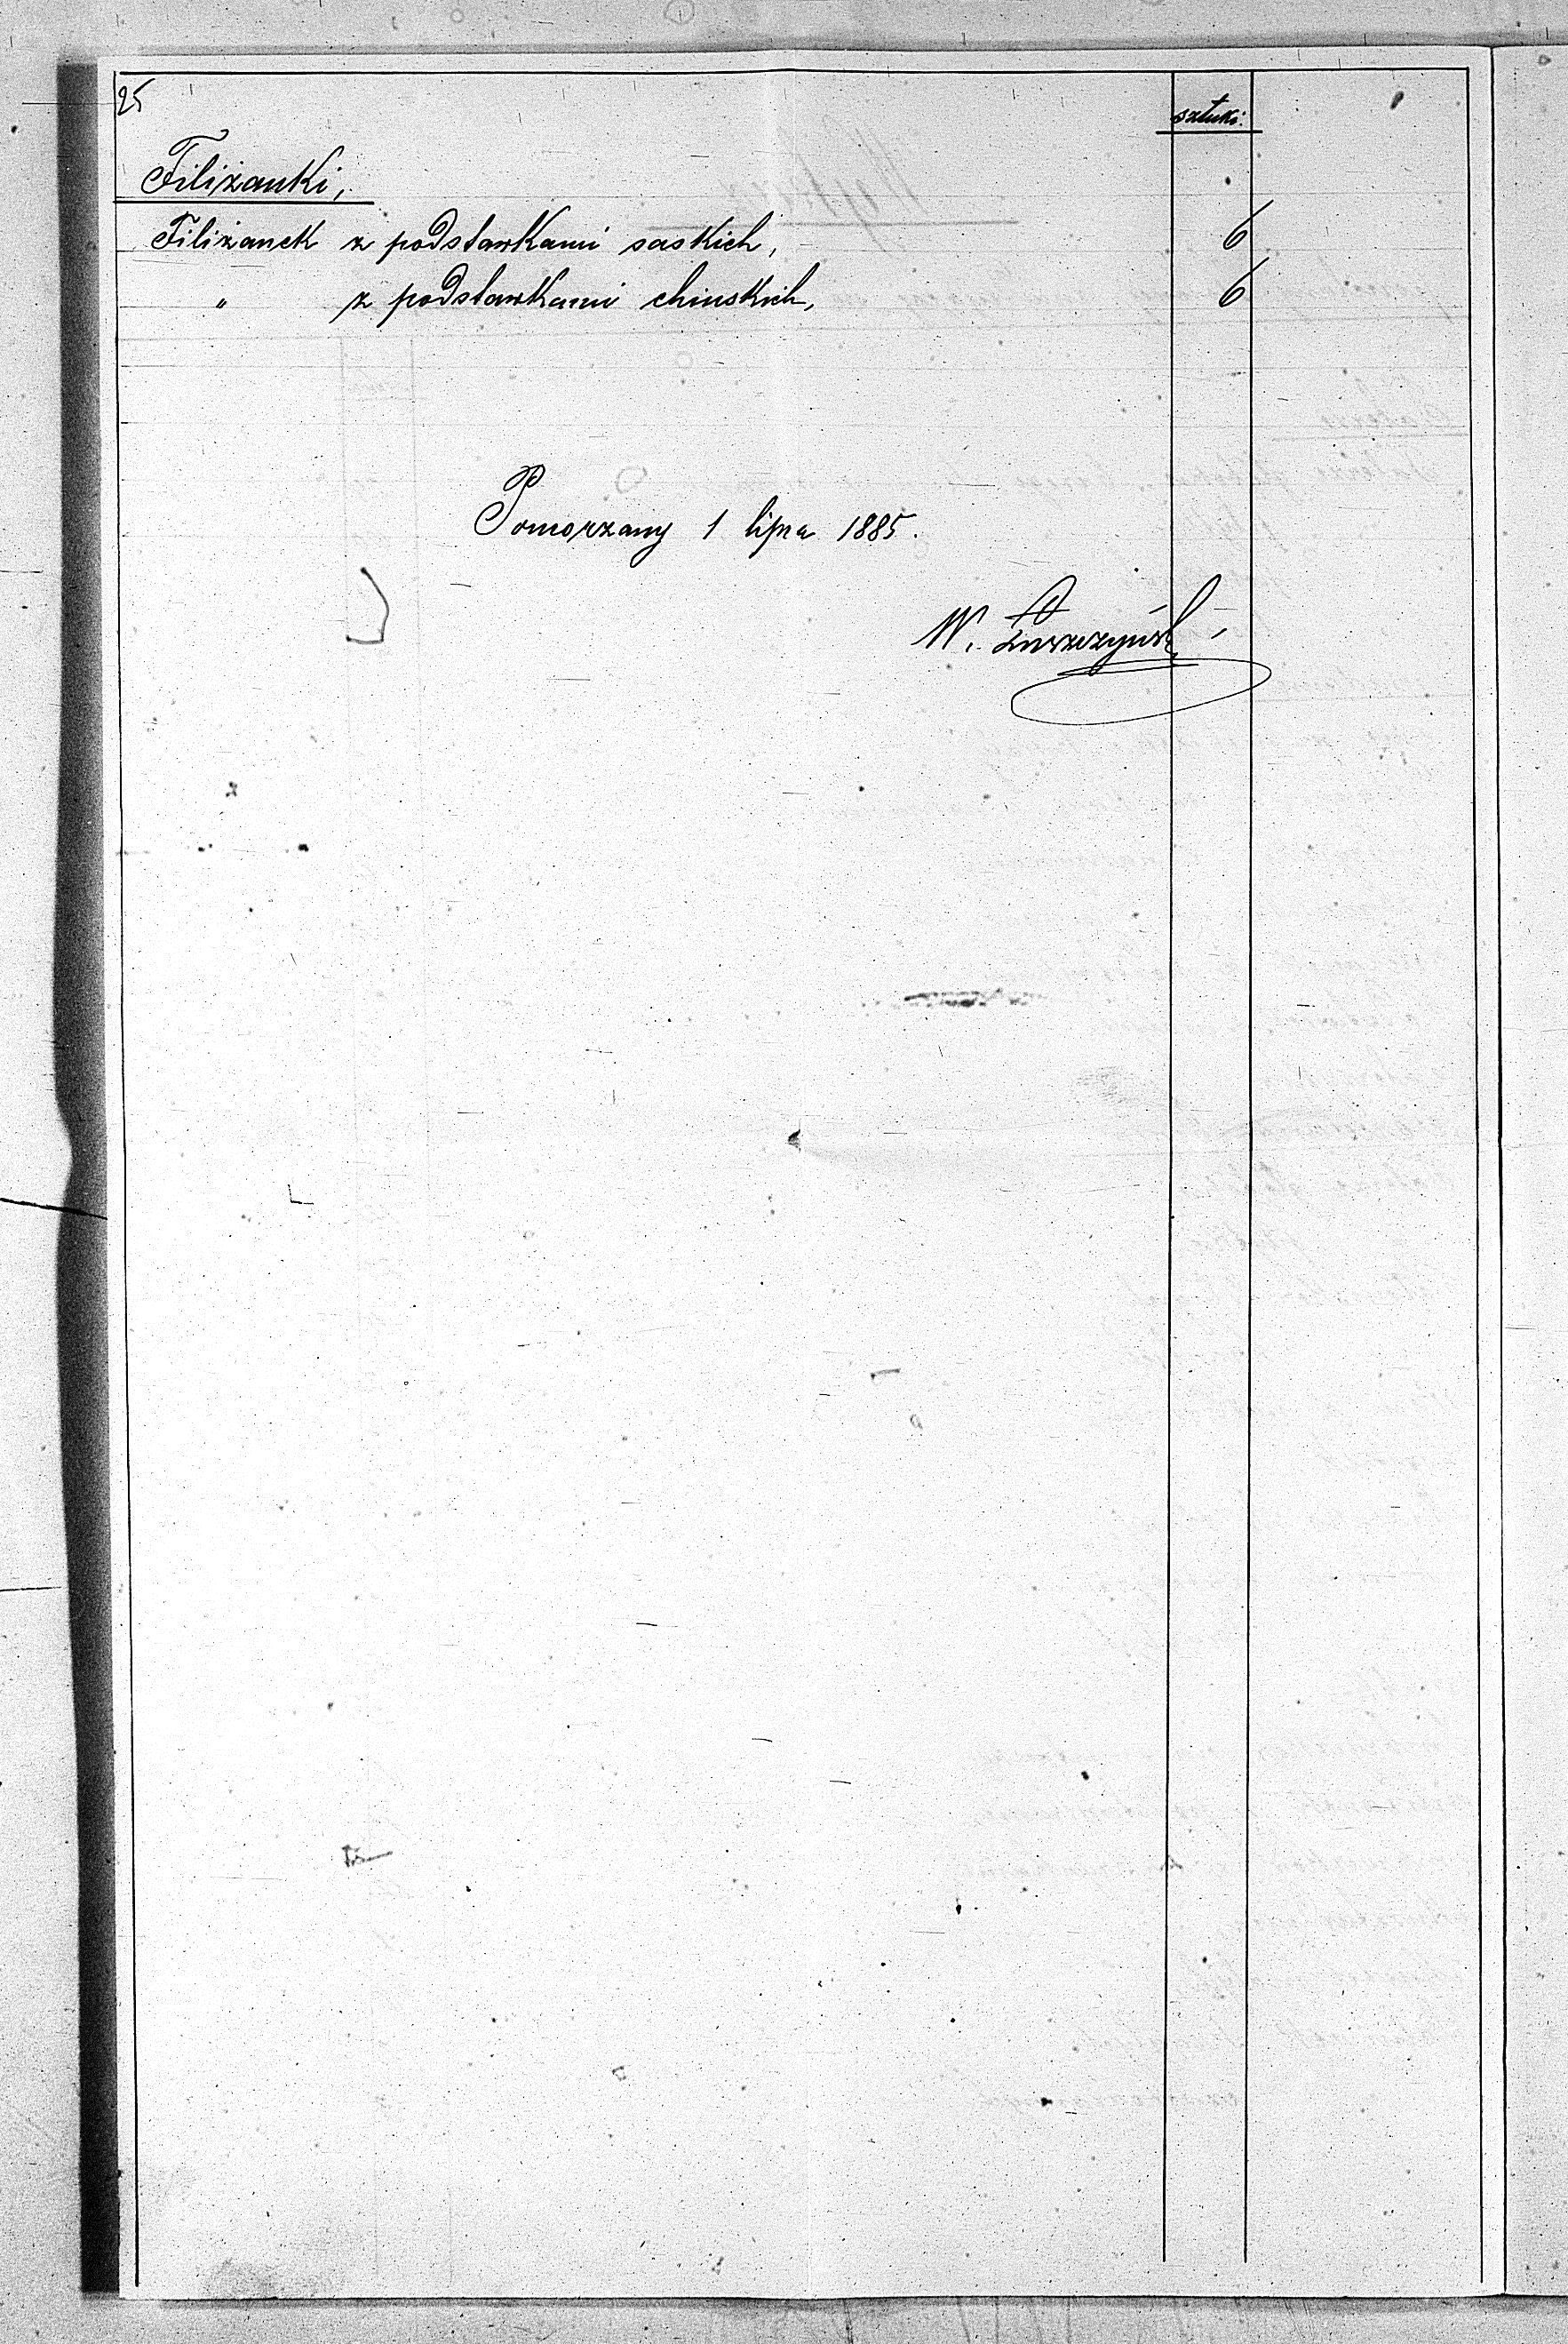 25
sztuki.
Filiżanki,
Filiżanek z podstawkami saskich, 6
" z podstawkami chinskich, 6
Pomorzany 1 lipca 1885.
W.